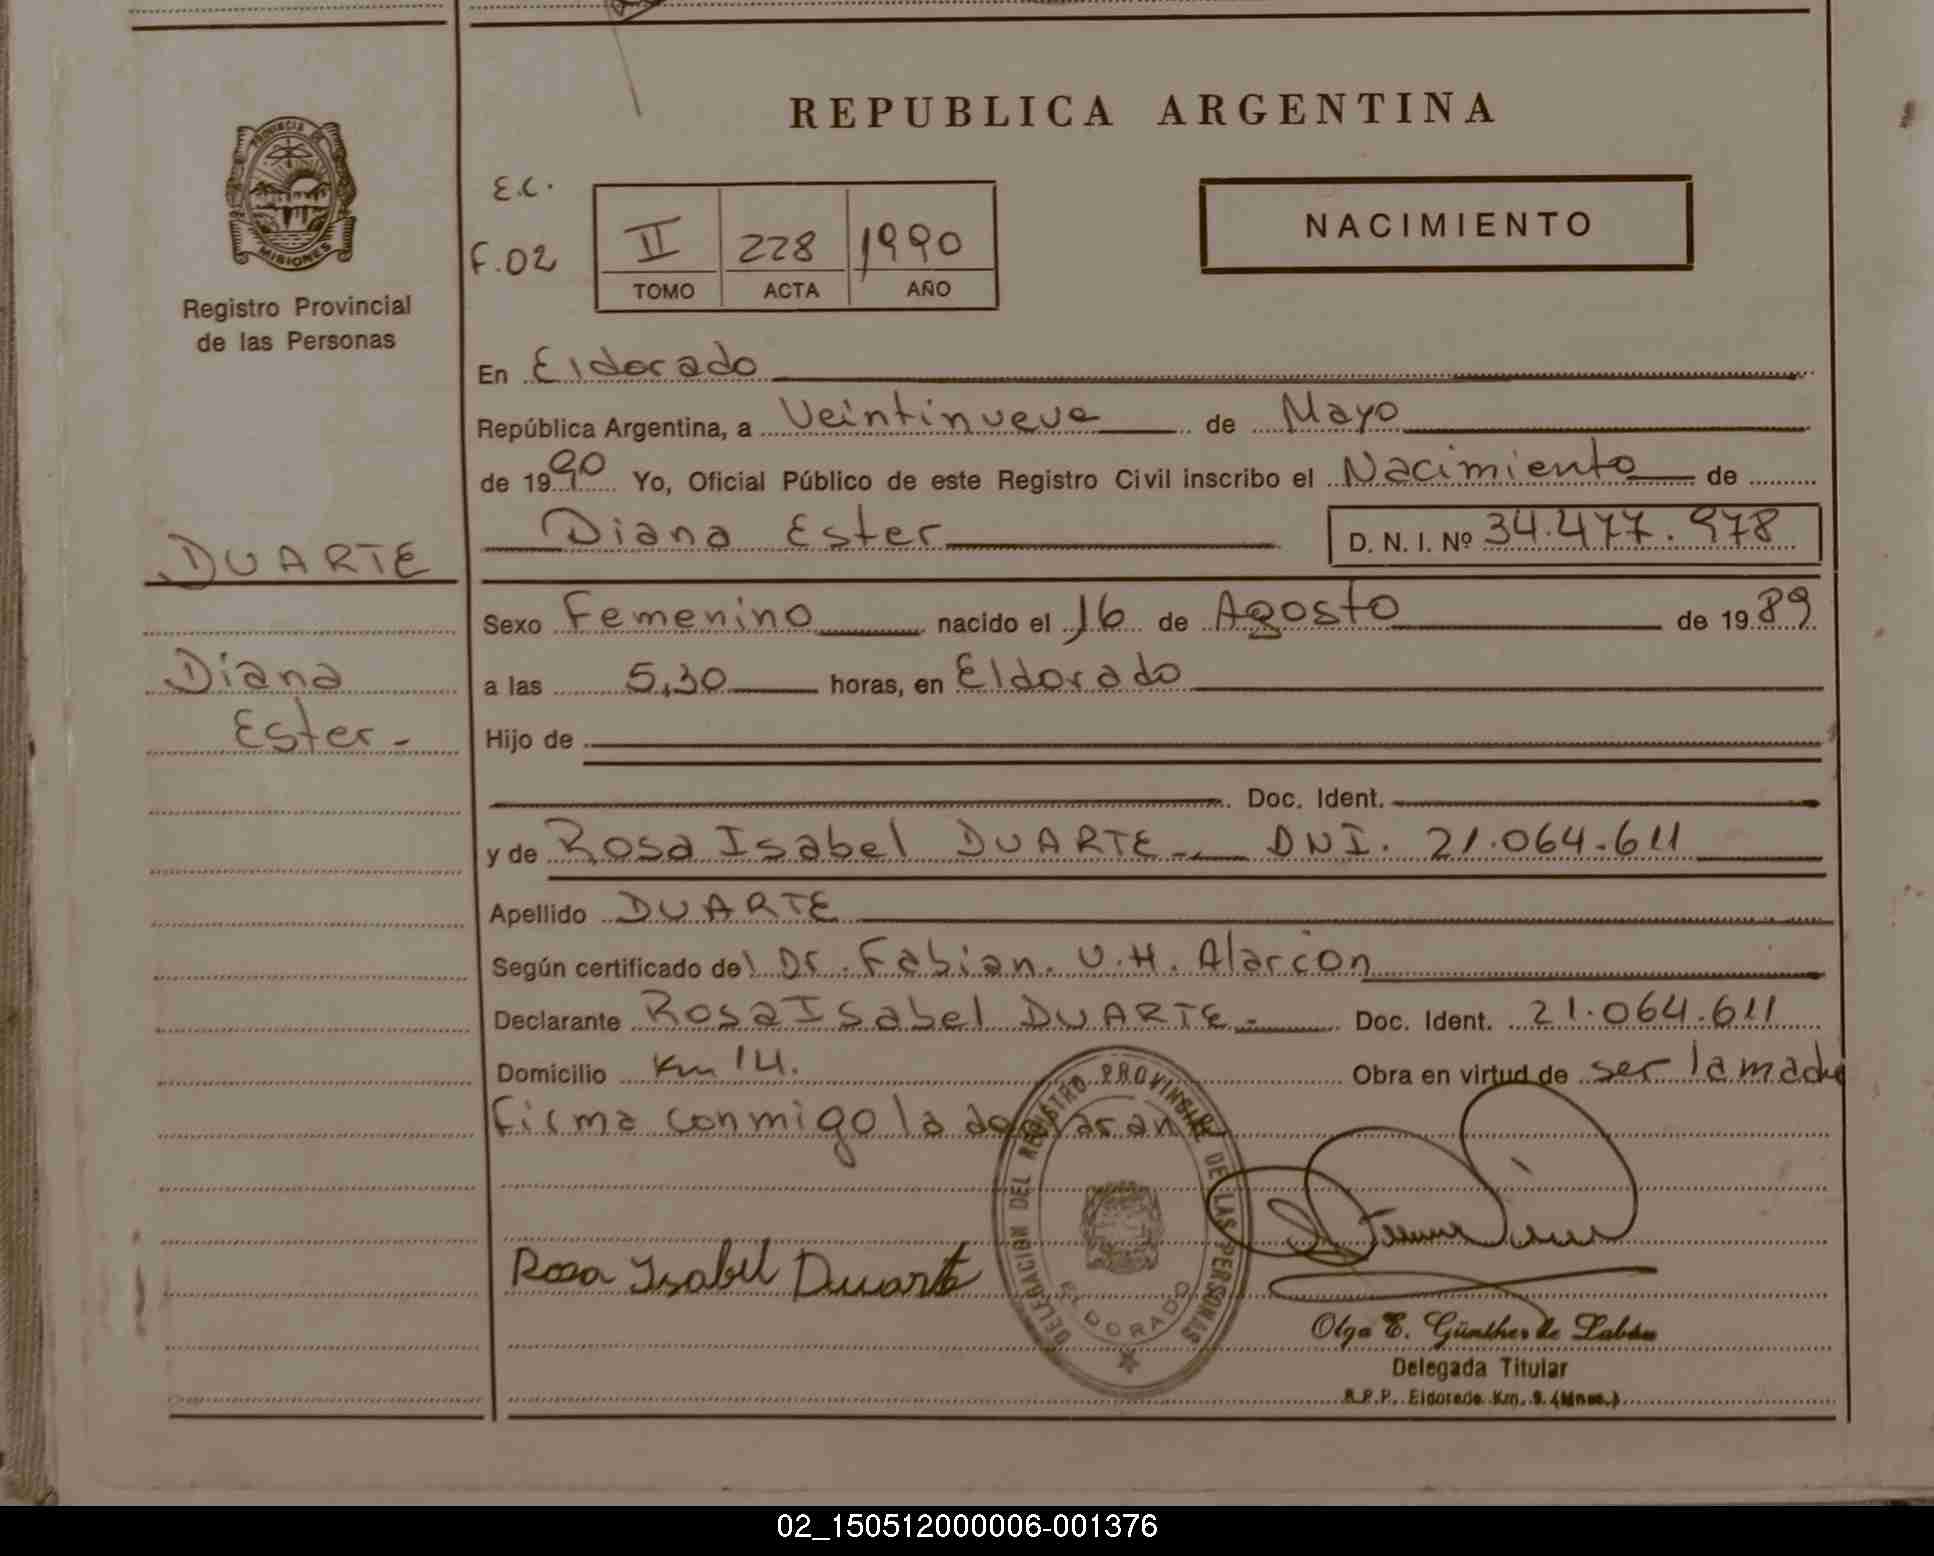 REPUBLICA ARGENTINA
PROVINCIA DE
MISIONES
Registro Provincial
de las Personas
E.C.
F.02
II 228 1990
TOMO ACTA AÑO
NACIMIENTO
En Eldorado
República Argentina, a Veintinueve de Mayo
de 1990 Yo, Oficial Público de este Registro Civil inscribo el Nacimiento de
Diana Ester D. N. I. Nº 34.477.978
DUARTE
Diana
Ester-
Sexo Femenino nacido el 16 de Agosto de 1989
a las 5,30 horas, en Eldorado
Hijo de
Doc. Ident.
y de Rosa Isabel DUARTE - DNI. 21.064.611
Apellido DUARTE
Según certificado del Dr. Fabian. V.H. Alarcon
Declarante Rosa Isabel DUARTE - Doc. Ident. 21.064.611
Domicilio Km 14. Obra en virtud de ser la madre
firma conmigo la
DELEGACION DEL REGISTRO PROVINCIAL DE LAS PERSONAS
ELDORADO
Rosa Isabel Duarte
Olga E. Günther de
Delegada Titular
R.P.P. Eldorado Km. 9 (Mnes.)
02_150512000006-001376